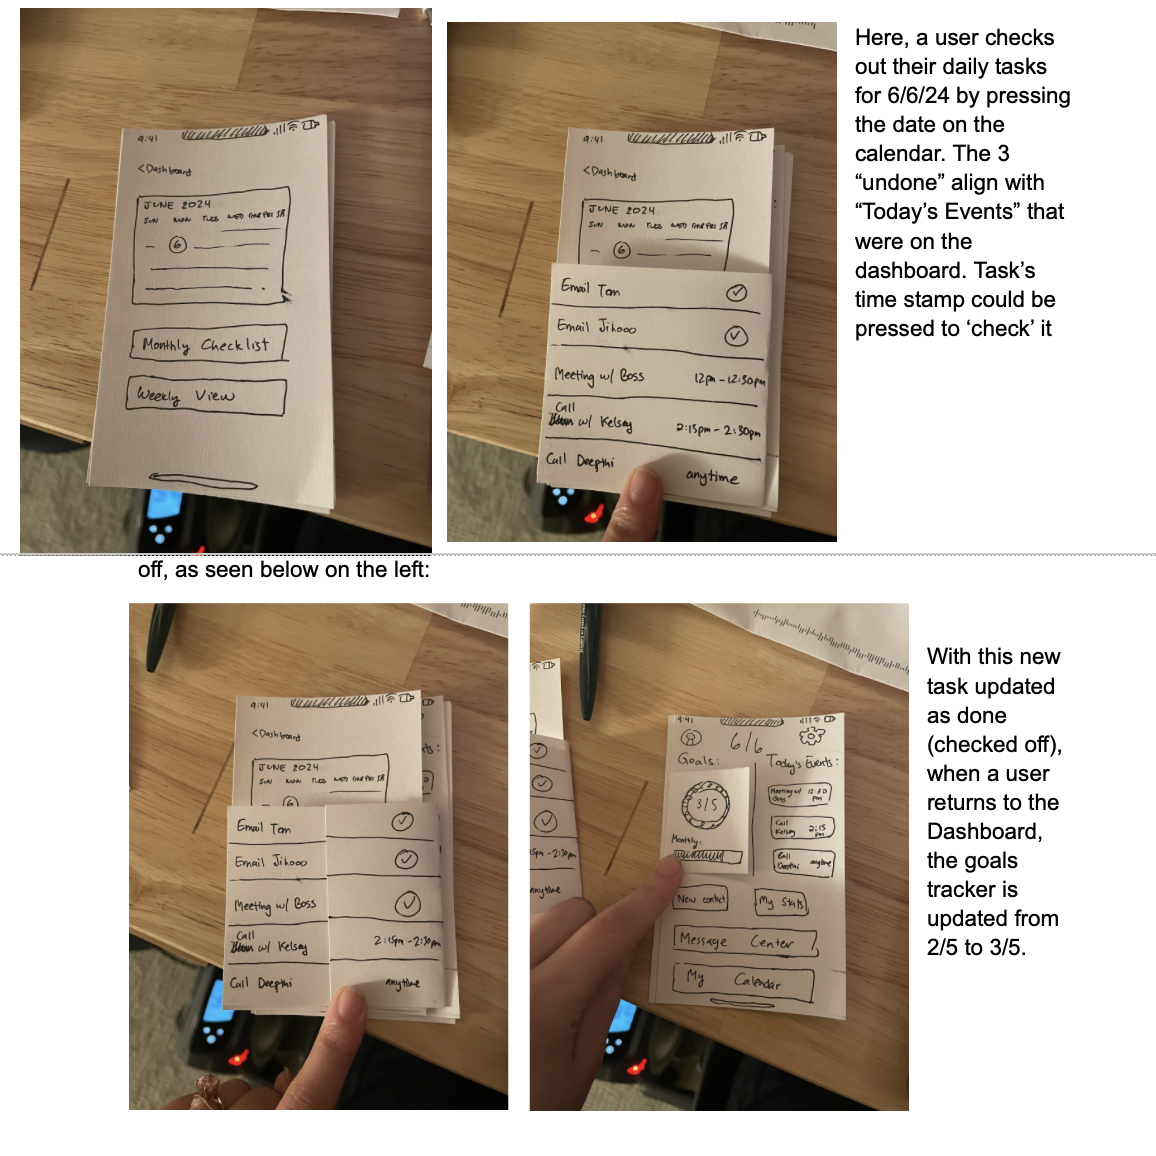 9:41
<Dashboard
JUNE 2024
SUN MON TUES WED THUR FRI SA
6
Monthly Checklist
Weekly View
9:41
<Dashboard
JUNE 2024
SUN MON TUES WED THUR FRI SA
6
Email Tom
Email Jihooo
Meeting w/ Boss 12pm - 12:30pm
Call
w/ Kelsey 2:15pm - 2:30pm
Call Deepthi anytime
Here, a user checks
out their daily tasks
for 6/6/24 by pressing
the date on the
calendar. The 3
“undone” align with
“Today’s Events” that
were on the
dashboard. Task’s
time stamp could be
pressed to ‘check’ it
off, as seen below on the left:
9:41
<Dashboard
JUNE 2024
SUN MON TUES WED THUR FRI SA
6
nts:
Email Tom
Email Jihooo
Meeting w/ Boss
Call
w/ Kelsey 2:15pm - 2:30pm
Call Deepthi anytime
15pm - 2:30pm
anytime
9:41
6/6
Goals: Today's Events:
3/5
Monthly:
Meeting w/ Boss 12:30 pm
Call Kelsey 2:15 pm
Call Deepthi anytime
New contact My Stats
Message Center
My Calendar
With this new
task updated
as done
(checked off),
when a user
returns to the
Dashboard,
the goals
tracker is
updated from
2/5 to 3/5.